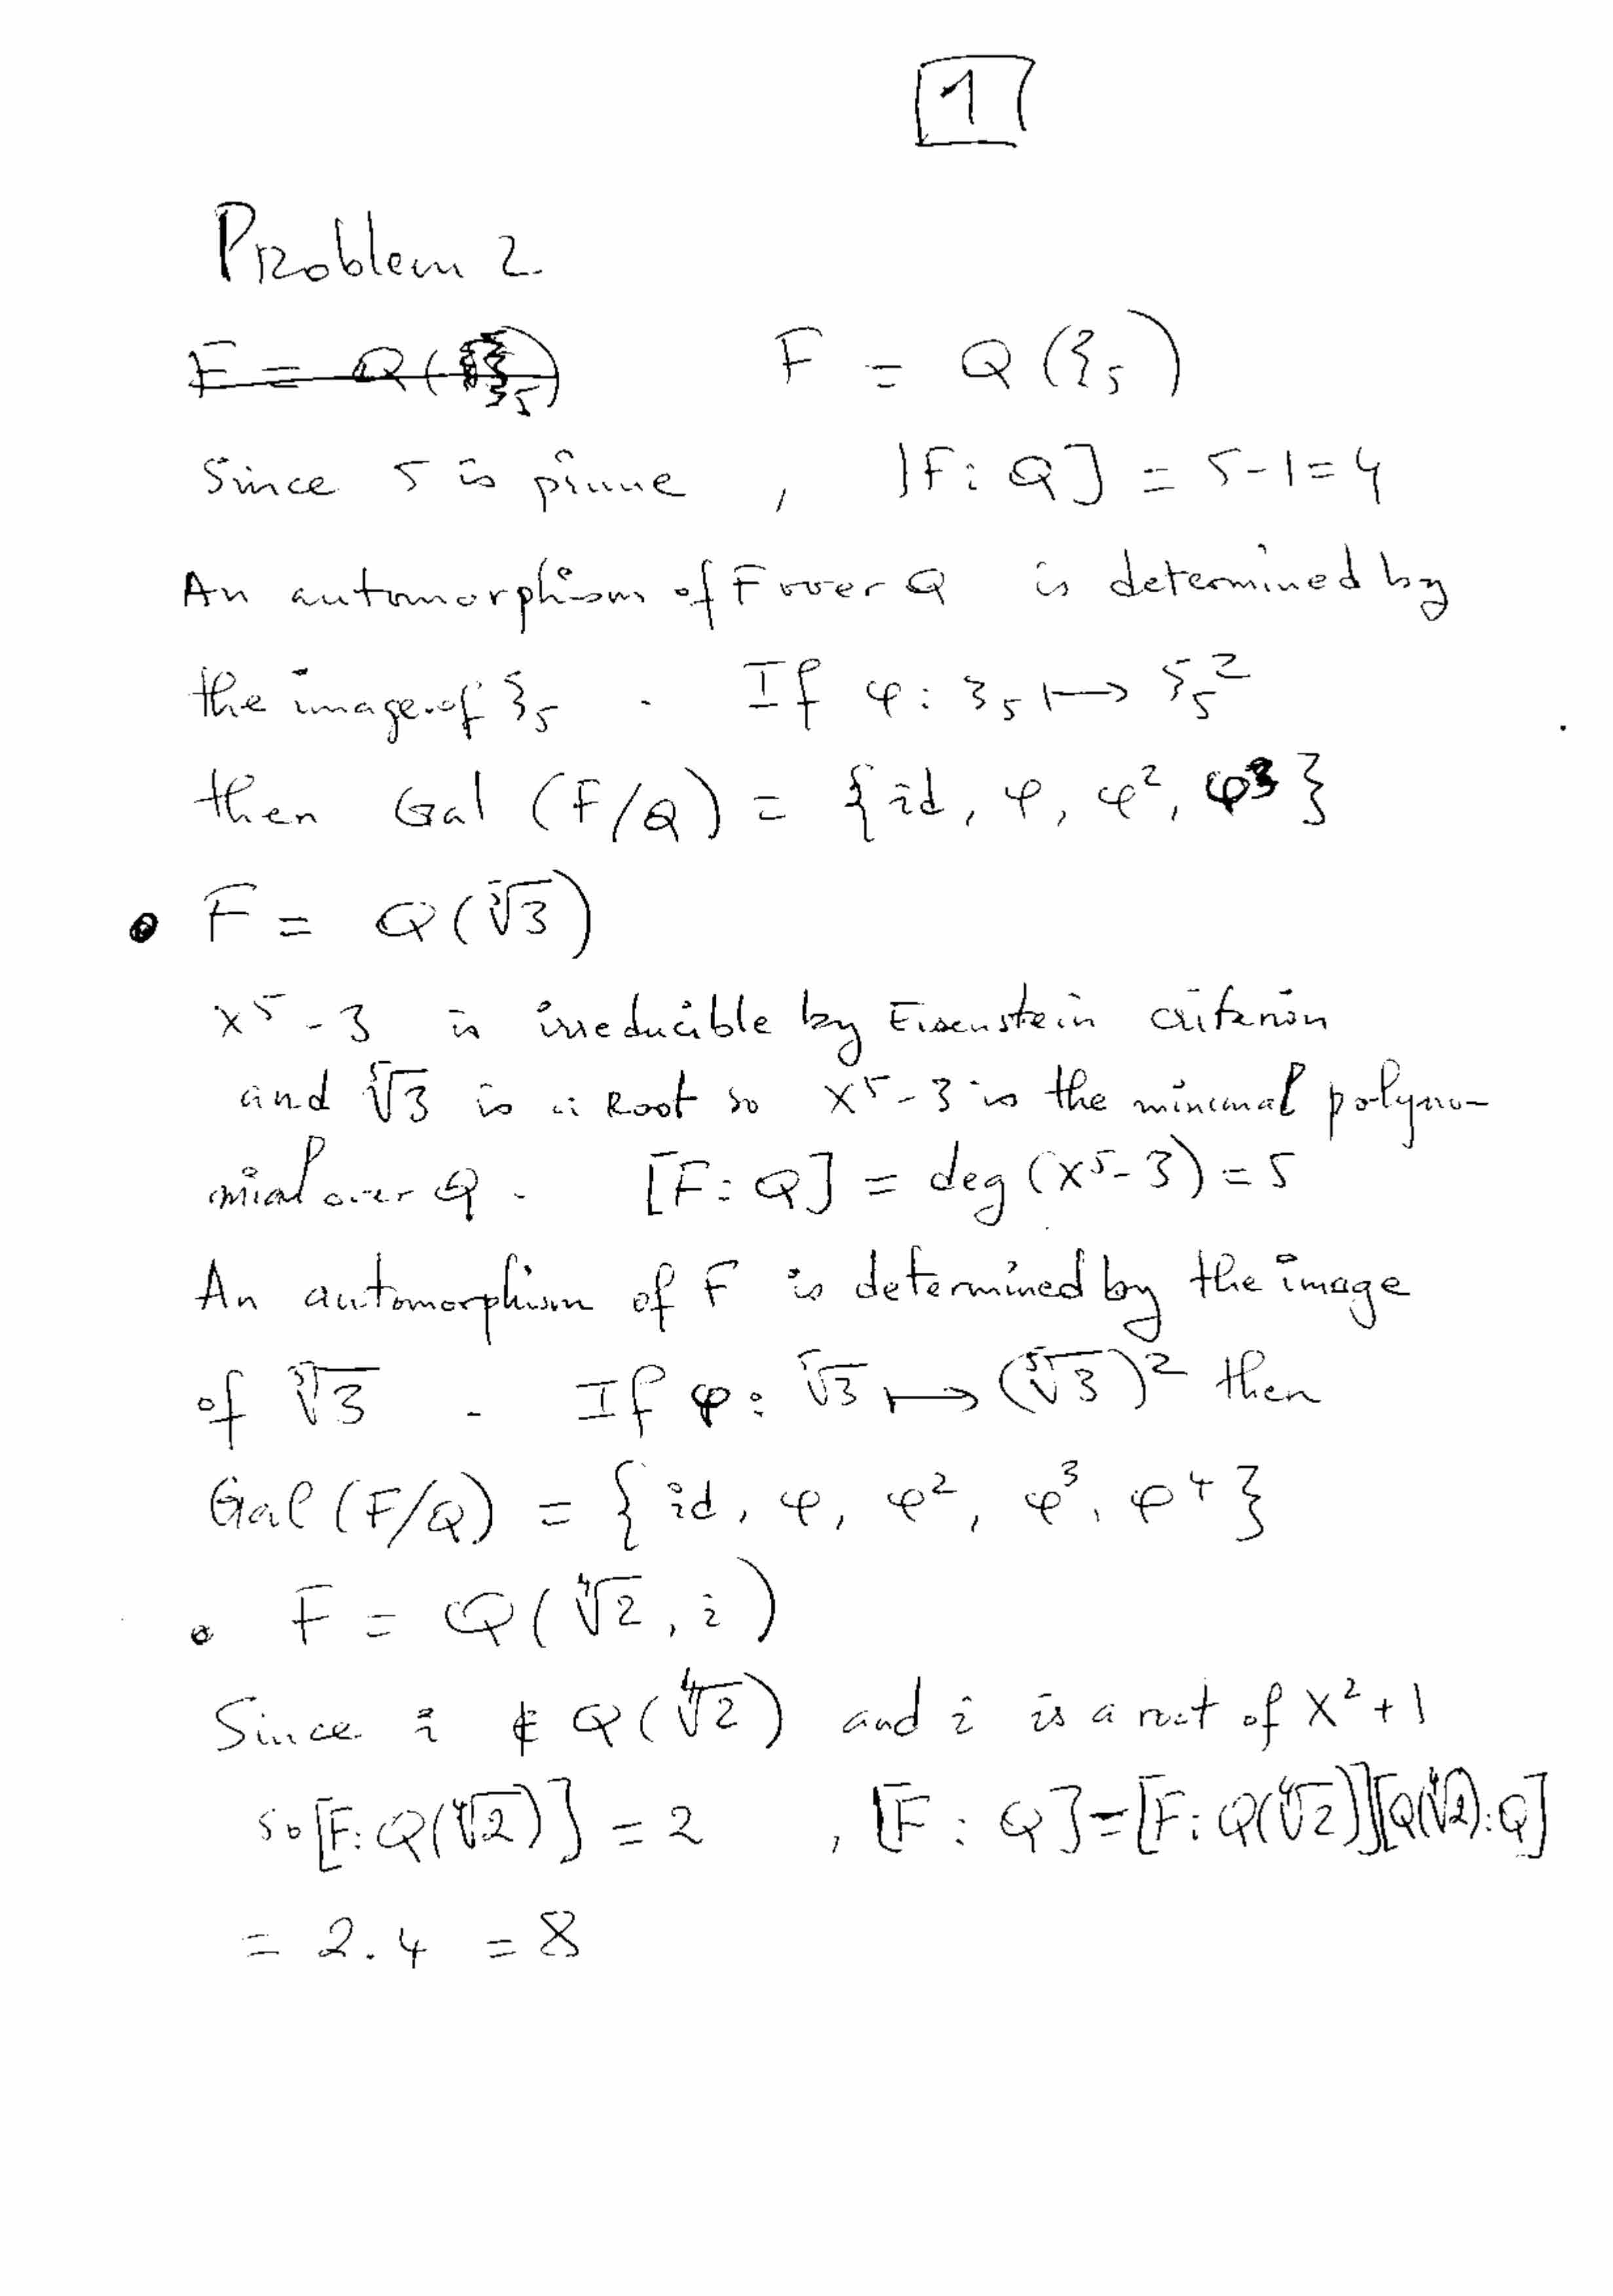 1
Problem 2
F = Q(ξ₅) F = Q(ξ₅)
Since 5 is prime, [F:Q] = 5-1=4
An automorphism of F over Q is determined by
the image of ξ₅. If φ: ξ₅ ↦ ξ₅²
then Gal (F/Q) = {id, φ, φ², φ³}
• F = Q(⁵√3)
x⁵-3 is irreducible by Eisenstein criterion
and ⁵√3 is a Root so x⁵-3 is the minimal polyno-
mial over Q. [F:Q] = deg(x⁵-3) = 5
An automorphism of F is determined by the image
of ⁵√3. If φ: ⁵√3 ↦ (⁵√3)² then
Gal(F/Q) = {id, φ, φ², φ³, φ⁴}
• F = Q(⁴√2, i)
Since i ∉ Q(⁴√2) and i is a root of X²+1
so [F:Q(⁴√2)] = 2, [F:Q] = [F:Q(⁴√2)][Q(⁴√2):Q]
= 2.4 = 8